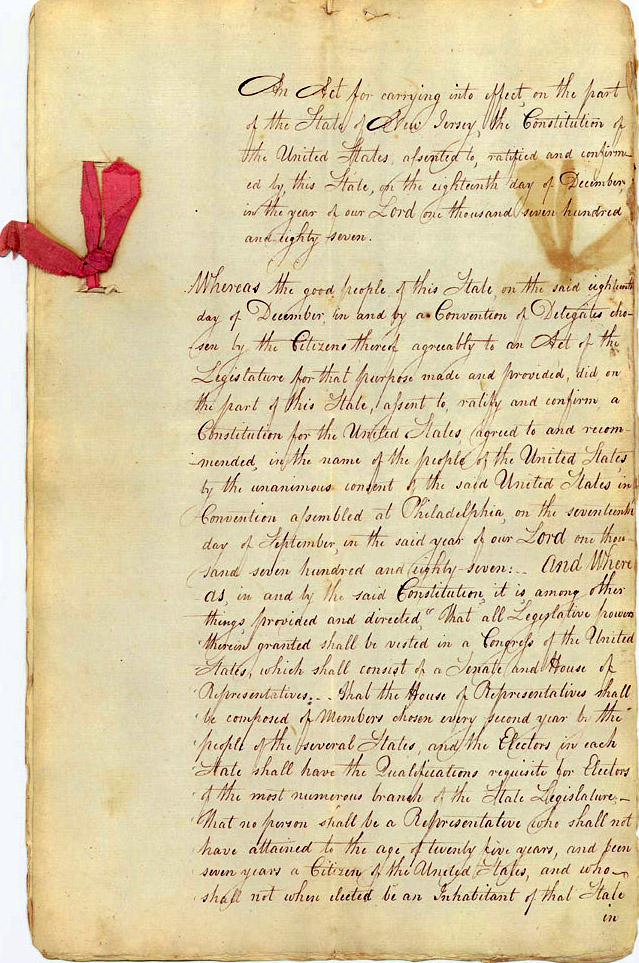 An Act for carrying into effect, on the part
of the State of New Jersey, the Constitution of
the United States, assented to, ratified and confirm-
ed by, this State, on the eighteenth day of December,
in the year of our Lord one thousand seven hundred
and eighty seven.
Whereas the good people of this State, on the said eighteenth
day of December, in and by a Convention of Delegates cho-
-sen by the Citizens thereof agreeably to an Act of the
Legislature for that purpose made and provided, did, on
the part of this State, assent to, ratify and confirm a
Constitution for the United States, agreed to and recom-
-mended, in the name of the people of the United States,
by the unanimous consent of the said United States in
Convention assembled at Philadelphia, on the seventeenth
day of September, in the said year of our Lord one thou-
sand seven hundred and eighty-seven:.. And Where
as, in and by the said Constitution, it is, among other
things, provided and directed, " That all Legislative powers
therein granted shall be vested in a Congress of the United
States, which shall consist of a Senate and House of
Representatives... That the House of Representatives shall
be composed of Members chosen every second year by the
people of the several States, and the Electors in each
State shall have the Qualifications requisite for Electors
of the most numerous branch of the State Legislature,—
That no person shall be a Representative who shall not
have attained to the age of twenty five years, and been
seven years a Citizen of the United States, and who
shall not when elected be an Inhabitant of that State
in